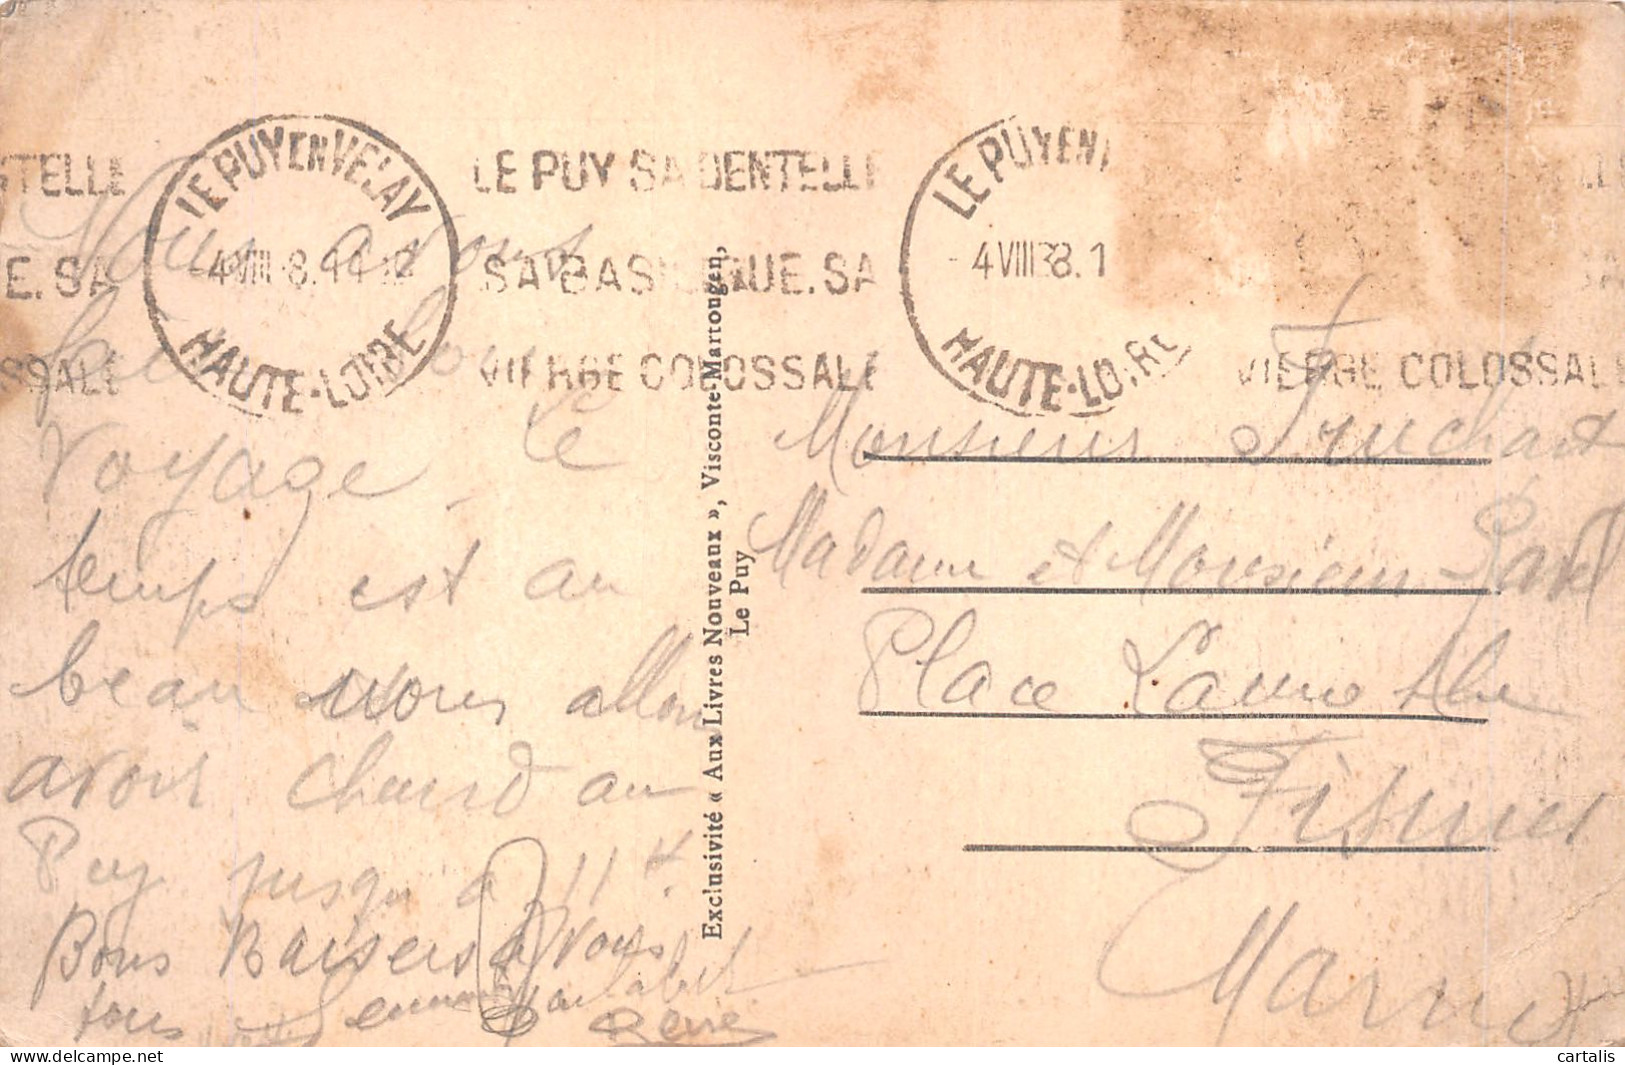 STELLE
E.SA
SSALE
LE PUY EN VELAY
4 VIII 38.
HAUTE-LOIRE
LE PUY SA DENTELLE
SA BASILIQUE. SA
VIERGE COLOSSALE
LE PUY EN
4 VIII 38. 1
HAUTE-LOIRE
VIERGE COLOSSALE
SA
Nous avons
fait bon
voyage le
temps est au
beau nous allons
avoir chaud au
Puy jusqu'à 11 H.
Bons Baisers à vous
tous
Exclusivité « Aux Livres Nouveaux », Visconte-Martougen,
Le Puy
Monsieur Fruchart
Madame et Monsieur
Place
Fismes
Marne
cartalis